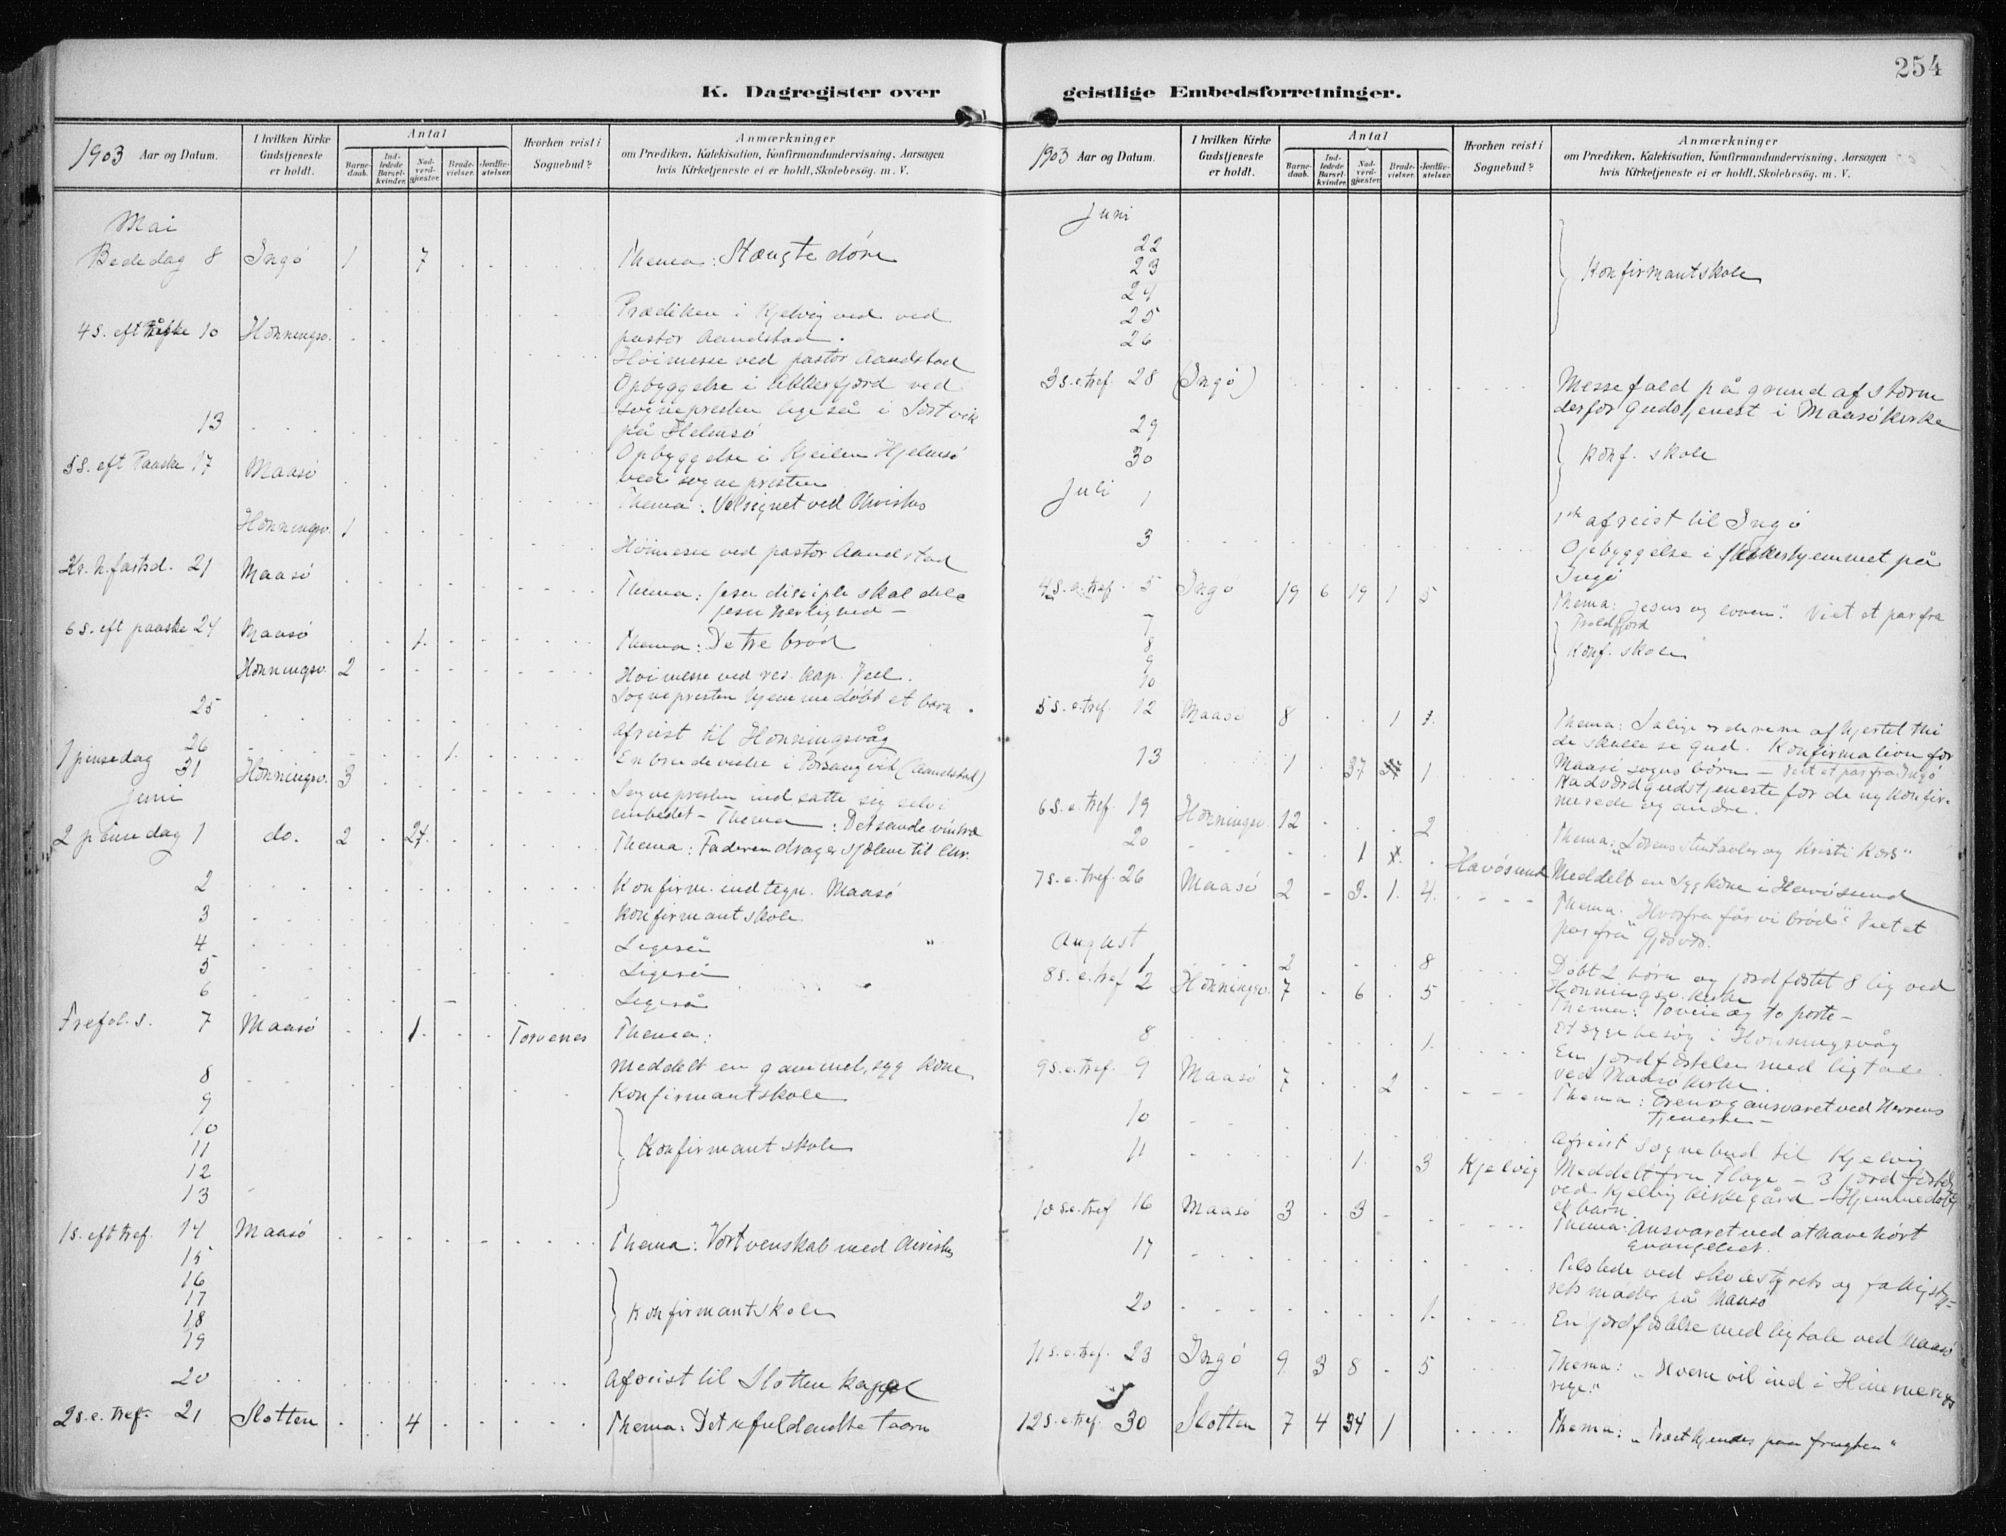 254
K. Dagregister over geistlige Embedsforretninger.
1903 Aar og Datum.
I hvilken Kirke Gudstjeneste er holdt.
Antal
Barnedaab.
Indledede Barselkvinder.
Nadverdgjester.
Brudevielser.
Jordfæstelser.
Hvorhen reist i Sognebud?
Anmærkninger
om Prædiken, Katekisation, Konfirmandundervisning, Aarsagen
hvis Kirketjeneste ei er holdt, Skolebesøg. m. V.
Mai
Bededag 8 Ingø 1 7 Thema: Stængte døre
Prædiken i Kjelvig ved
4 S. eft Påske 10 Honningsv. pastor Aandstad.
Høimesse ved pastor Aandstad
Opbyggelse i Akkerfjord ved
sognepresten ligeså i
13 på Helmsø
Opbyggelse i Hjelmsø
5 S. eft Paaske 17 Maasø ved sognepresten
Thema: Velsignet ved Christus
Honningsv. 1
Høimesse ved pastor Aandstad
Kr. h. fartsd. 21 Maasø
Thema: Jesu disciple skal dele
Jesu herlighed -
6 S. eft paaske 24 Maasø 1. Thema: De tre brød
Honningsv. 2 Høimesse ved res. kap. Juel.
Sognepresten hjemmedøbt et barn.
25
afreist til Honningsvåg
26 1. En brudevielse i (Aandstad)
1 pinsedag 31 Honningsv. 3
Juni Sognepresten indsatte sig selv i
embedet - Thema: Det sande vintræ
2 pinsedag 1 do. 2 24. Thema: Faderen drager sjælene til Chr.
2 Konfirm. indtegn. Maasø
3 Konfirmantskole
4 Ligeså "
5 Ligeså
6 Ligeså
Trefol. s. 7 Maasø 1. Torvenes Thema:
Meddelt en gammel, syg kone
8 Konfirmantskole
9
10
11 Konfirmantskole
12
13
1 S. eft tref. 14 Maasø Thema: Vort venskab med Christus
15
16
17 Konfirmantskole
18
19
20 Afreist til Slotten kapel
2 S. e. tref. 21 Slotten 4 Thema: Det ufuldendte taarn
1903 Aar og Datum.
I hvilken Kirke Gudstjeneste er holdt.
Antal
Barnedaab.
Indledede Barselkvinder.
Nadverdgjester.
Brudevielser.
Jordfæstelser.
Hvorhen reist i Sognebud?
Anmærkninger
om Prædiken, Katekisation, Konfirmandundervisning, Aarsagen
hvis Kirketjeneste ei er holdt, Skolebesøg. m. V.
Juni
22
23 Konfirmantskole
24
25
26
3 S. e. tref. 28 (Ingø) Messefald på grund af storm
derfor gudstjenest i Maasø kirke
29
30 Konf. skole
Juli 1
afreist til Ingø
3 Opbyggelse i på
Ingø
4 S. e. tref. 5 Ingø 19 6 19 1 5 Thema: Jesus og loven". Viet et par fra
Troldfjord
7
8 Konf. skole
9
10
5 S. e. tref. 12 Maasø 8 1 1. Thema: Salige er de rene af hjertet thi
de skulle se Gud. Konfirmation for
13 1 37 1 Maasø sogns børn - Viet et par fra Ingø
Nadverdgudstjeneste for de nykonfir-
merede og andre.
6 S. e. tref. 19 Honningsv. 12 2
Thema: og Kristi Kors"
20 1 Havøsund Meddelt en syg kone i Havøsund
7 S. e. tref. 26 Maasø 2 - 3. 1. 4. Thema: "Hvorfra får vi brød" Viet et
par fra
August
1 2 8 Døbt 2 børn og jordfæstet 8 lig ved
Honningsv. kirke
8 S. e. tref 2 Honningsv. 7 6 5 Thema: To veie og to porte -
Et sygebesøg i Honningsvåg
8 1. En jordfæstelse med ligtale
ved Maasø kirke.
9 S. e. tref. 9 Maasø 7 2 Thema: Æren og ansvaret ved Herrens
tjeneste -
10 Afreist Sognebud til Kjelvig
11 1. 3 Kjelvig Meddelt fru Flage - 3 jordfæstelser
ved Kjelvig kirkegård - Hjemmedøbt
et barn.
10 S. e. tref 16 Maasø 3 3 Thema: Ansvaret ved at have hørt
Evangeliet.
17 Tilstede ved skolestyrets og fattigsty-
rets møder på Maasø
20 1. En jordfæstelse med ligtale ved Maasø
11 S. e. tref. 23 Ingø 9 3 8 - 5 Thema: "Hvem vil ind i Himmeriges
rige."
12 S. e. tref. 30 Slotten 7 4 34 1 Thema: "Træet kjendes paa frugten"